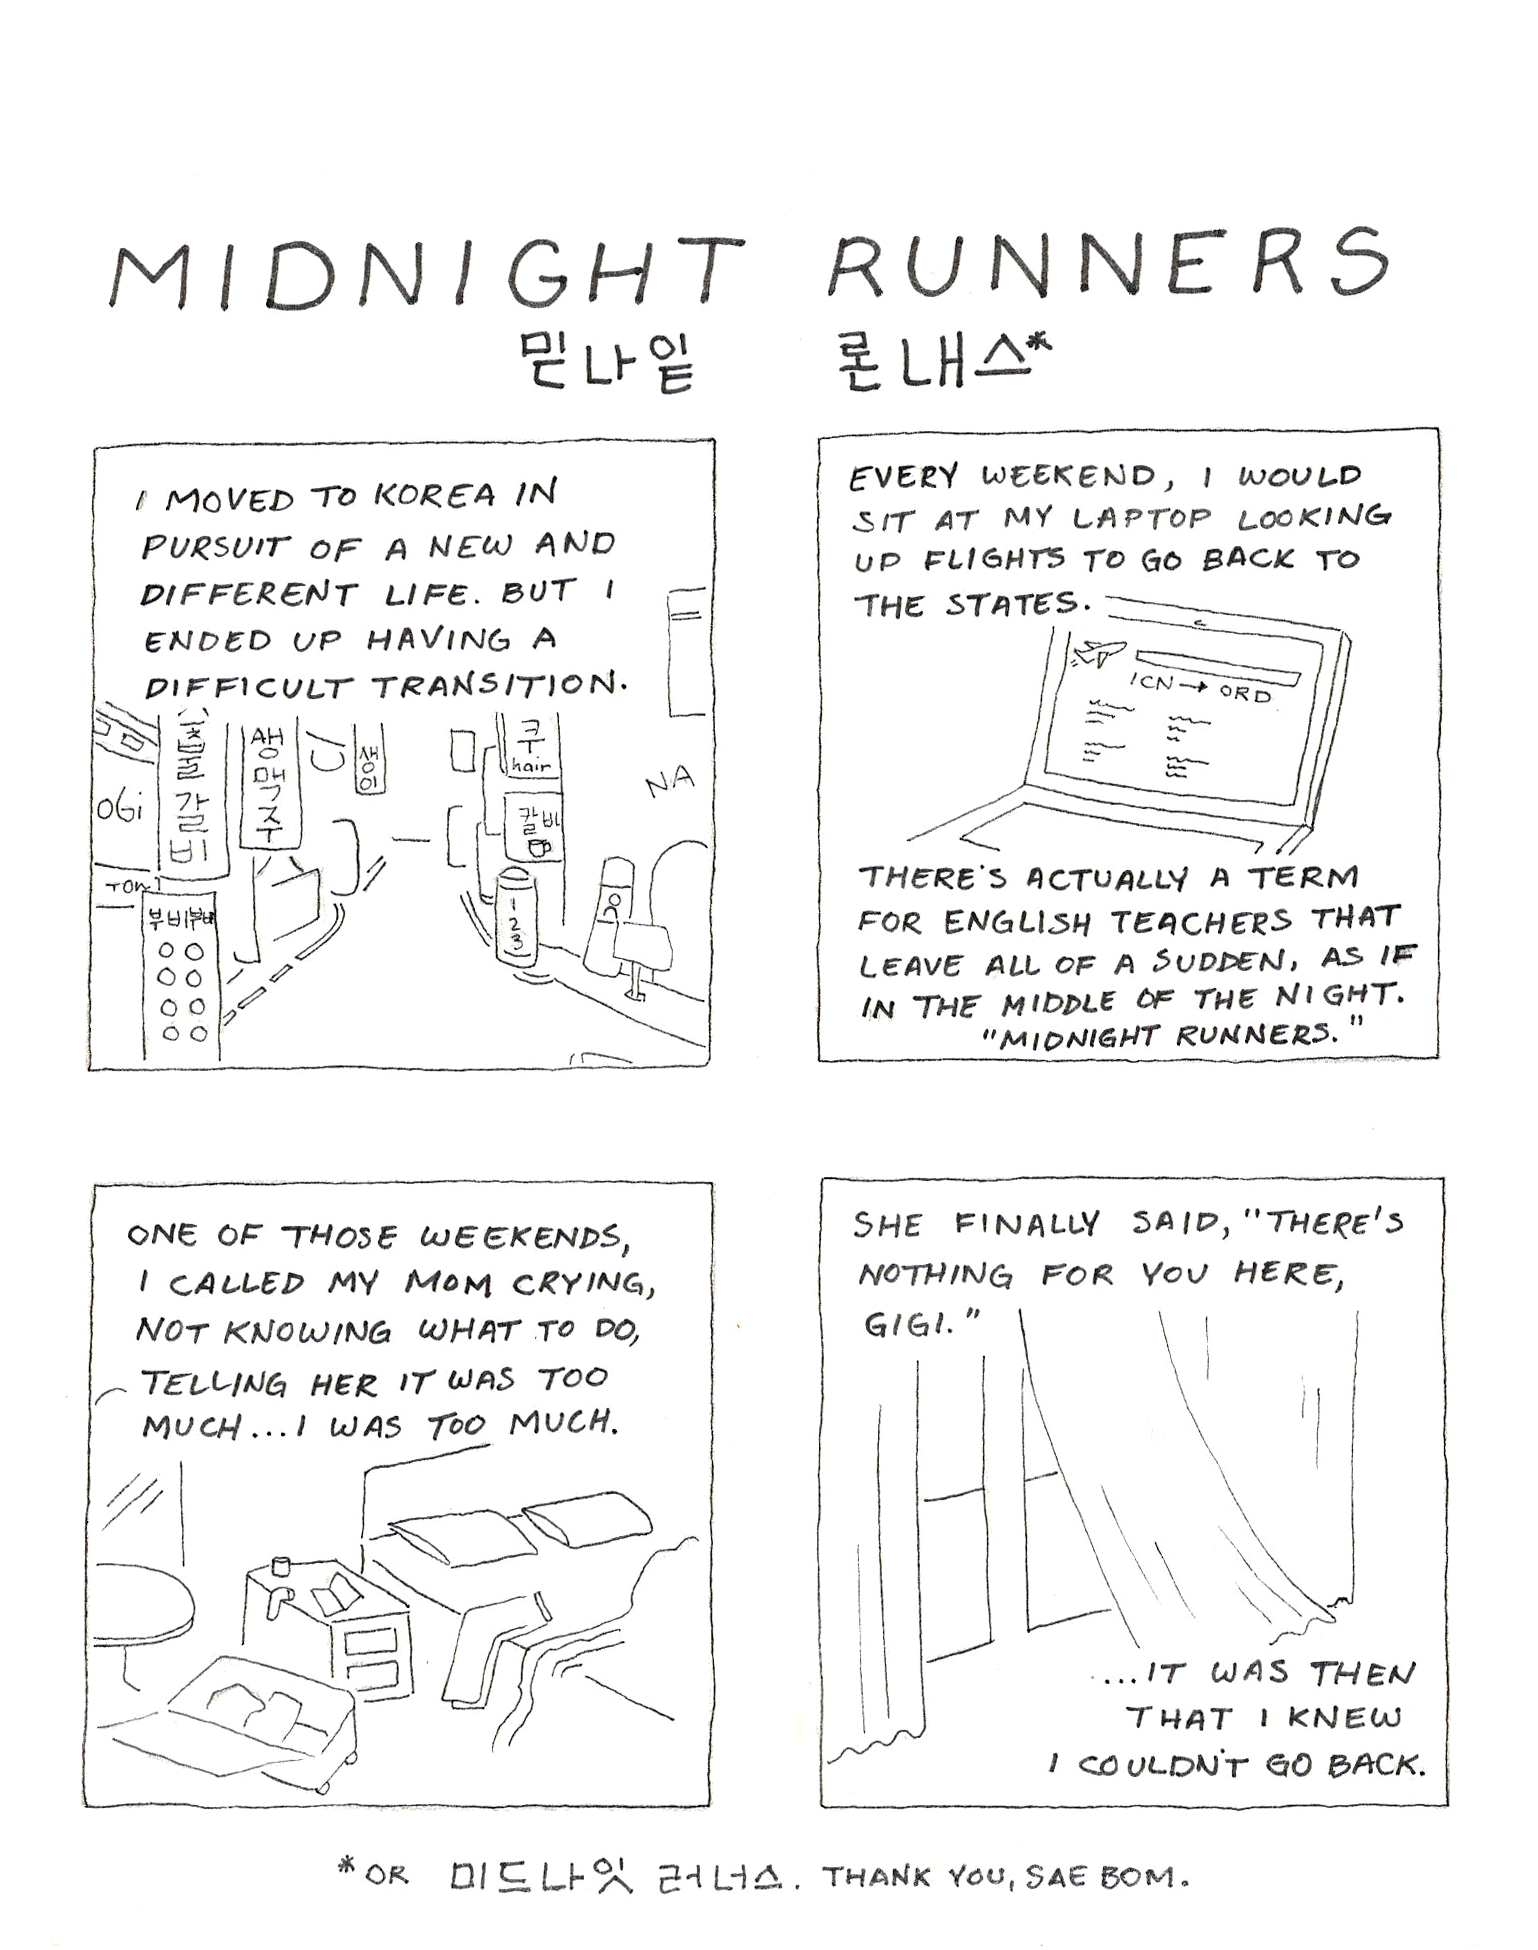 MIDNIGHT RUNNERS
믿나잍 론내스*
I MOVED TO KOREA IN
PURSUIT OF A NEW AND
DIFFERENT LIFE. BUT I
ENDED UP HAVING A
DIFFICULT TRANSITION.
OGi
TOM
불갈비
생맥주
생이
쿠
hair
칼비
NA
1
2
3
부비부비
EVERY WEEKEND, I WOULD
SIT AT MY LAPTOP LOOKING
UP FLIGHTS TO GO BACK TO
THE STATES.
ICN → ORD
THERE'S ACTUALLY A TERM
FOR ENGLISH TEACHERS THAT
LEAVE ALL OF A SUDDEN, AS IF
IN THE MIDDLE OF THE NIGHT.
"MIDNIGHT RUNNERS."
ONE OF THOSE WEEKENDS,
I CALLED MY MOM CRYING,
NOT KNOWING WHAT TO DO,
TELLING HER IT WAS TOO
MUCH...I WAS TOO MUCH.
SHE FINALLY SAID, "THERE'S
NOTHING FOR YOU HERE,
GIGI."
...IT WAS THEN
THAT I KNEW
I COULDN'T GO BACK.
*OR 미드나잇 러너스. THANK YOU, SAE BOM.